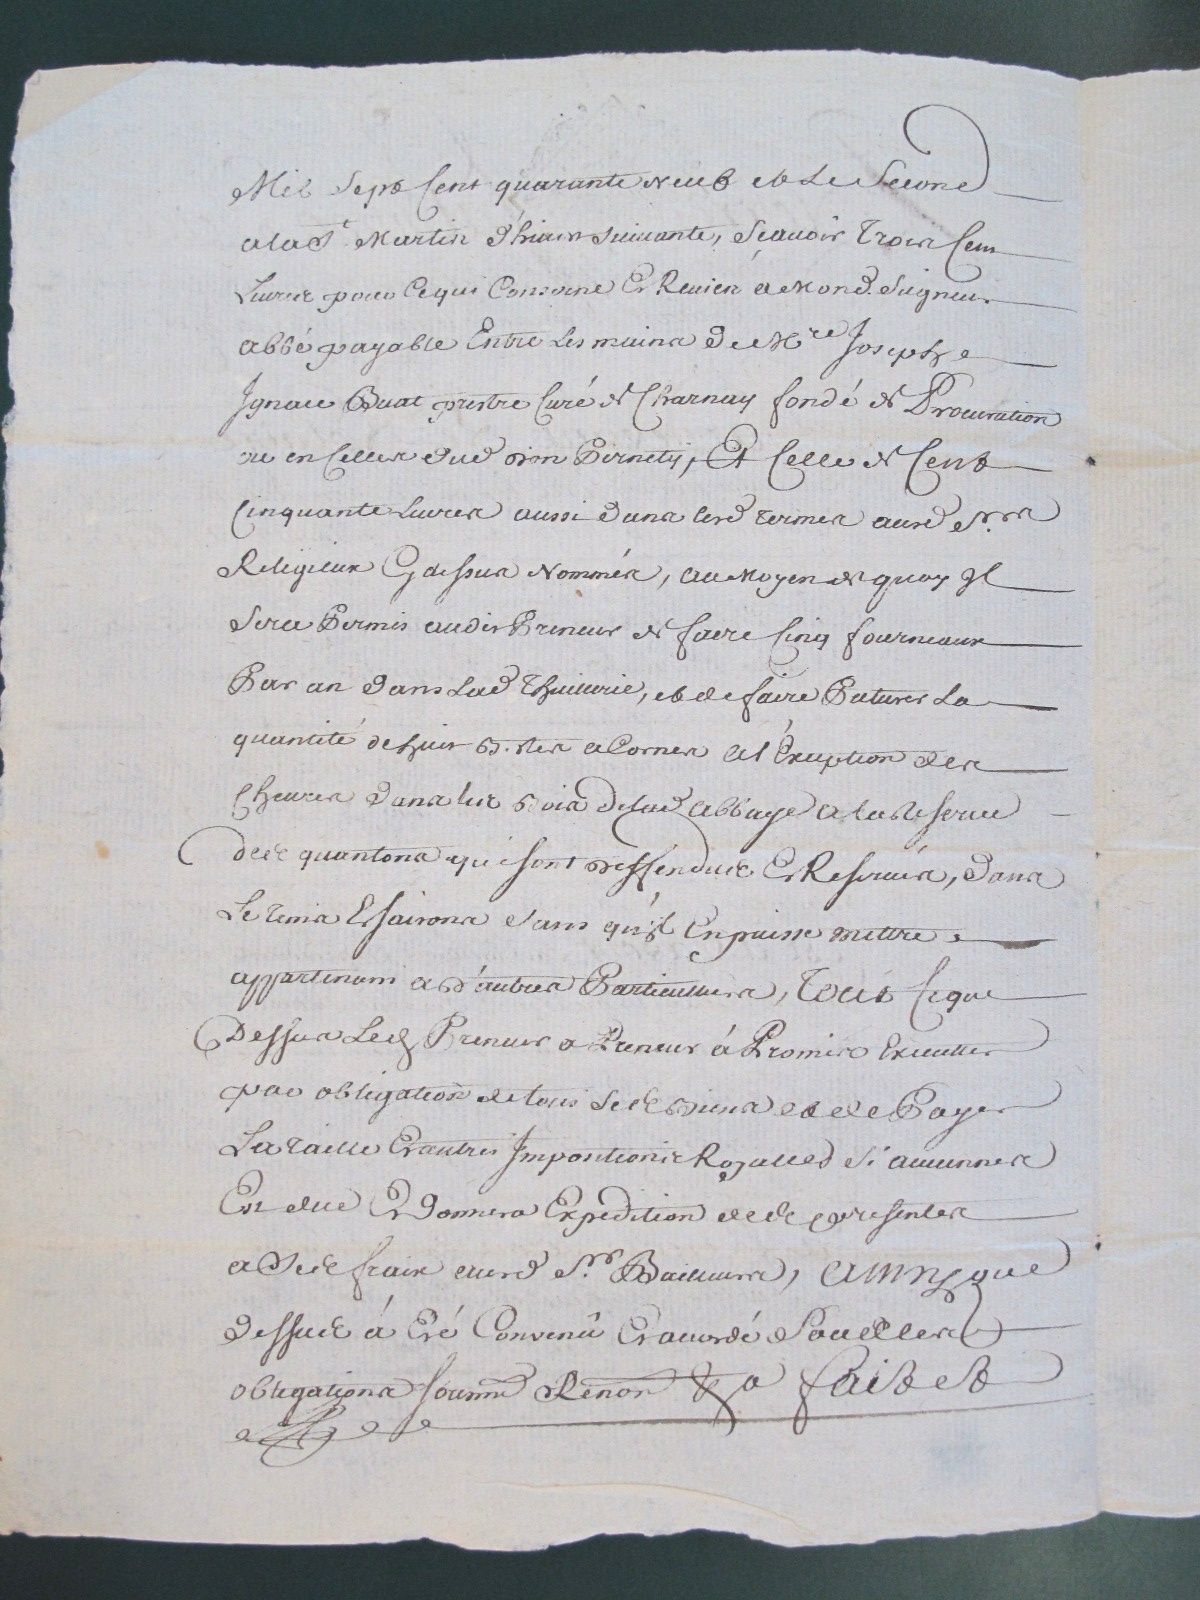 Mil Sept Cent quarante Neuf et Le Second
a la St Martin d'hiver suivante, Sçavoir Trois Cent
Livres pour Ce qui Conserne Et Revien a Mond. Seigneur
abbé payable Entre Les mains De Mre Joseph
Ignace Buat prestre Curé de Charnay fondé de Procuration
de Celle de Cent
Cinquante Livres aussi dans lesd termes ausd Srs
Religieux Cy dessus Nommés, au Moyen de quoy Il
Sera Permis audit Preneur de faire Cinq fourneaux
Par an dans Lad Thuillerie, et de faire Paturer La
quantité de huit Bestes a Cornes a l'Exception des
Chevres dans les Bois de lad abbaye a la Reserve
des quantons qui sont deffendues Et Reservés, dans
Le Tems Et saisons sans qu'il En puisse mettre
appartenant a d'autres Particulliers, Tout Ce que
Dessus Led Preneur a Promis Executter
par obligation de tous Ses Biens et de Payer
La Taille Et autres Impositions Royalles Si aucunnes
Est due Et Donnera Expedition des presentes
a Ses fraix ausd Srs Bailleurs, ainsy que
dessus à Eté Convenû Et acordé Soubs Les
obligations soumis Renon &a fait et